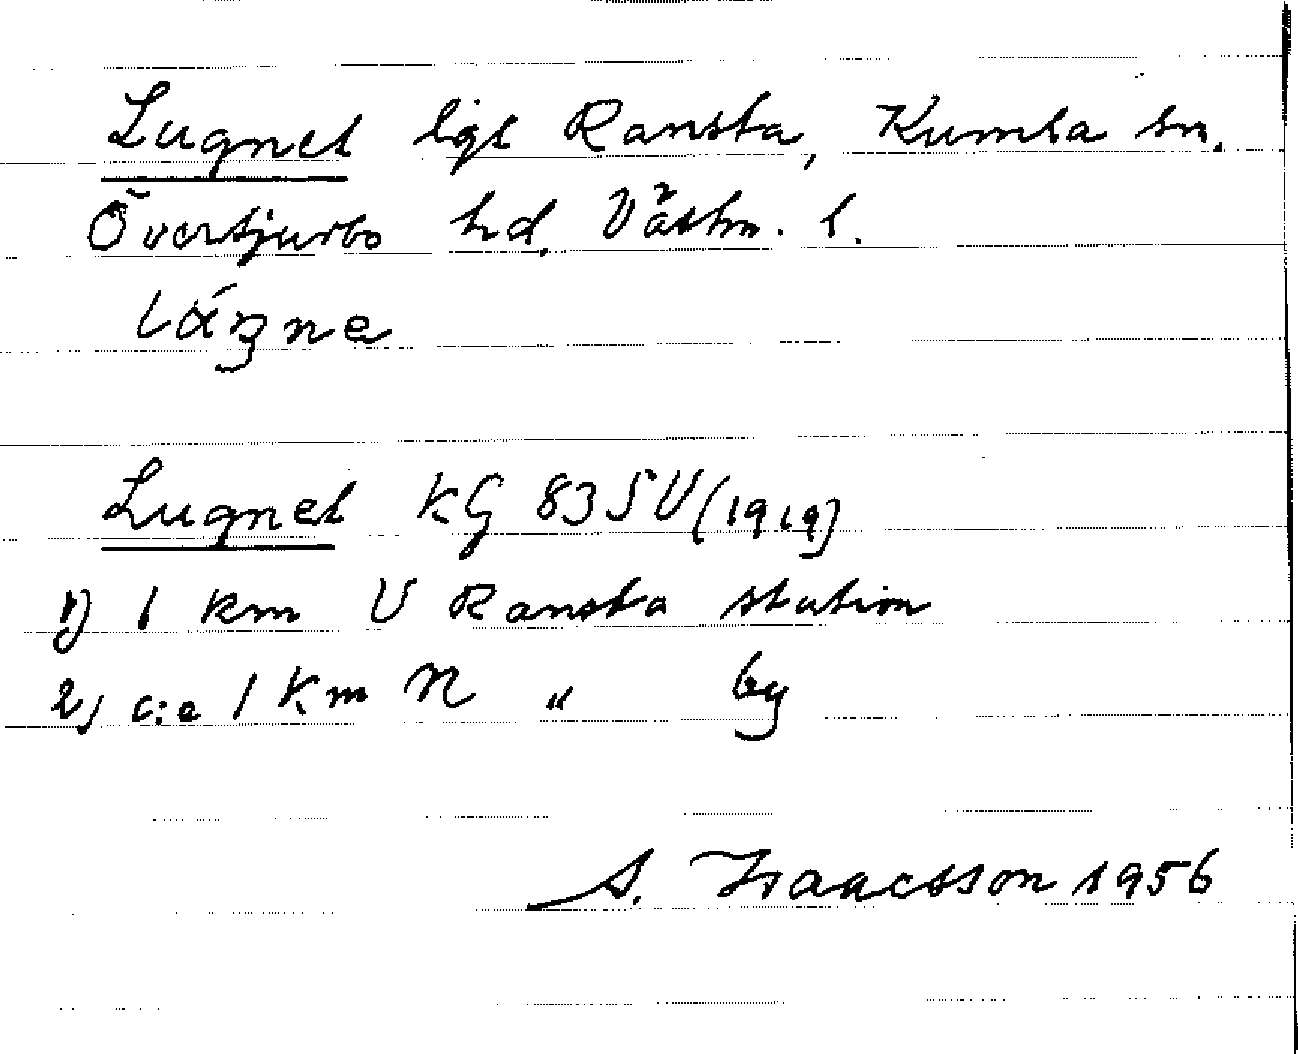 Lugnet lgt Ransta, Kumla sn.
Övertjurbo hd. Västm. l.
láŋne
Lugnet KG 83 SV (1919)
1) 1 km V Ransta station
2) c:a 1 km N " by
S. Isaacsson 1956